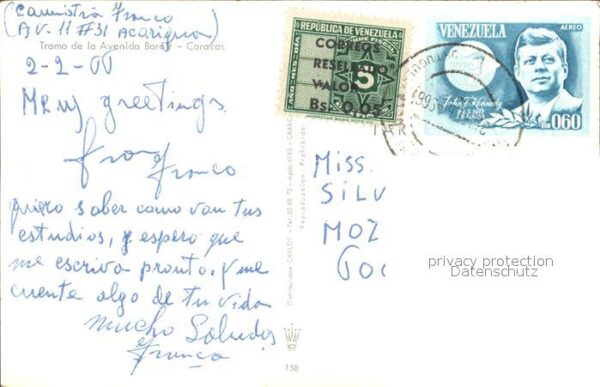 (Caunistra Franco
(AV. 11 #31 Acarigua
Tramo de la Avenida Baralt - Caracas
2-2-66
Many greetings
from
Franco
quiero saber como van tus
estudios, y espero que
me escriva pronto. y me
cuente algo de tu vida
Mucho Saludos
Franco
REPUBLICA DE VENEZUELA
CORREOS
RESELLADO
VALOR
Bs. 0,05
5
VENEZUELA
AEREO
John F. Kennedy
Bs. 0,60
Miss.
SILV
MOZ
privacy protection
Datenschutz
Distribuidora CARLOS - Tel. 82 89 73 - Apdo 6785 - CARAC
Reproduccion Prohibida
158